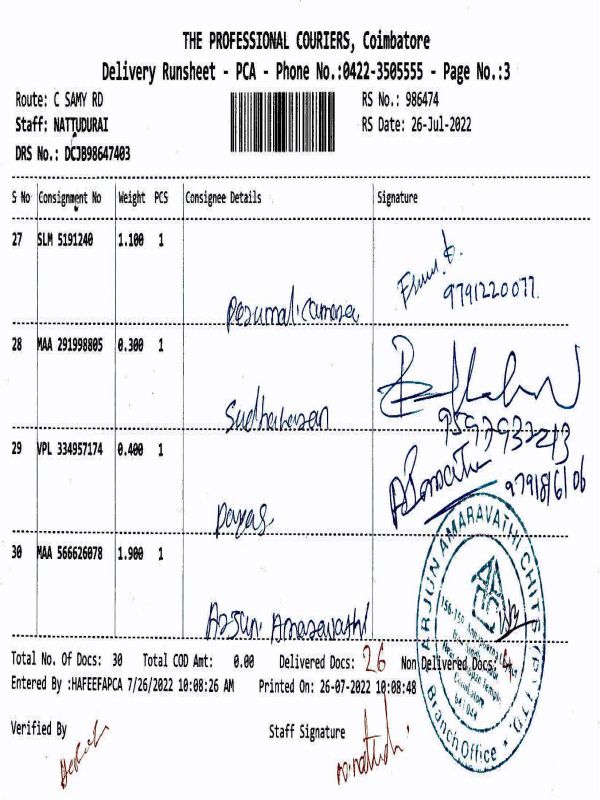 THE PROFESSIONAL COURIERS, Coimbatore
Delivery Runsheet - PCA - Phone No.:0422-3505555 - Page No.:3
Route: C SAMY RD RS No.: 986474
Staff: NATTUDURAI RS Date: 26-Jul-2022
DRS No.: DCJB98647403
S No Consignment No Weight PCS Consignee Details Signature
27 SLM 5191240 1.100 1
9791220077
28 MAA 291998805 0.300 1
Sudhakaran
29 VPL 334957174 0.400 1
30 MAA 566626078 1.900 1
Arjun. Amaravathi
ARJUN AMARAVATHI CHITS (P) LTD.
Branch Office
Total No. Of Docs: 30 Total COD Amt: 0.00 Delivered Docs: 26 Non Delivered Docs: 4
Entered By :HAFEEFAPCA 7/26/2022 10:08:26 AM Printed On: 26-07-2022 10:08:48
Verified By Staff Signature